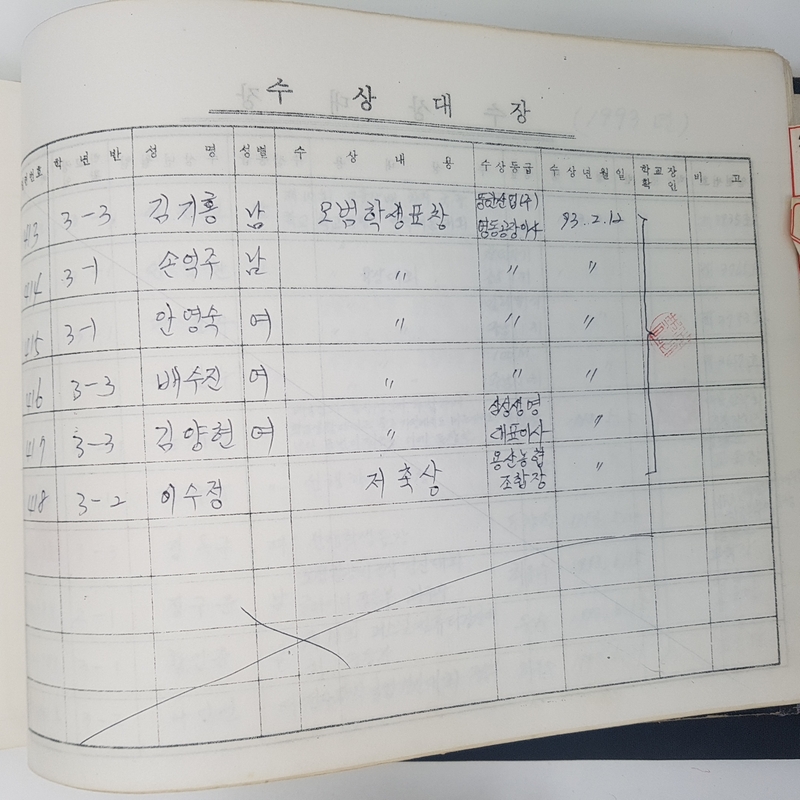 수 상 대 장
번호 학년반 성명 성별 수상내용 수상등급 수상년월일 학교장확인 비고
413 3-3 김기홍 남 모범학생표창 영동공장이사 93.2.12
414 3-1 손억주 남 〃 〃 〃
415 3-1 안영숙 여 〃 〃 〃
416 3-3 배수진 여 〃 〃 〃
417 3-3 김양현 여 〃 삼성생명 대표이사 〃
418 3-2 이수정 저축상 용산농협 조합장 〃